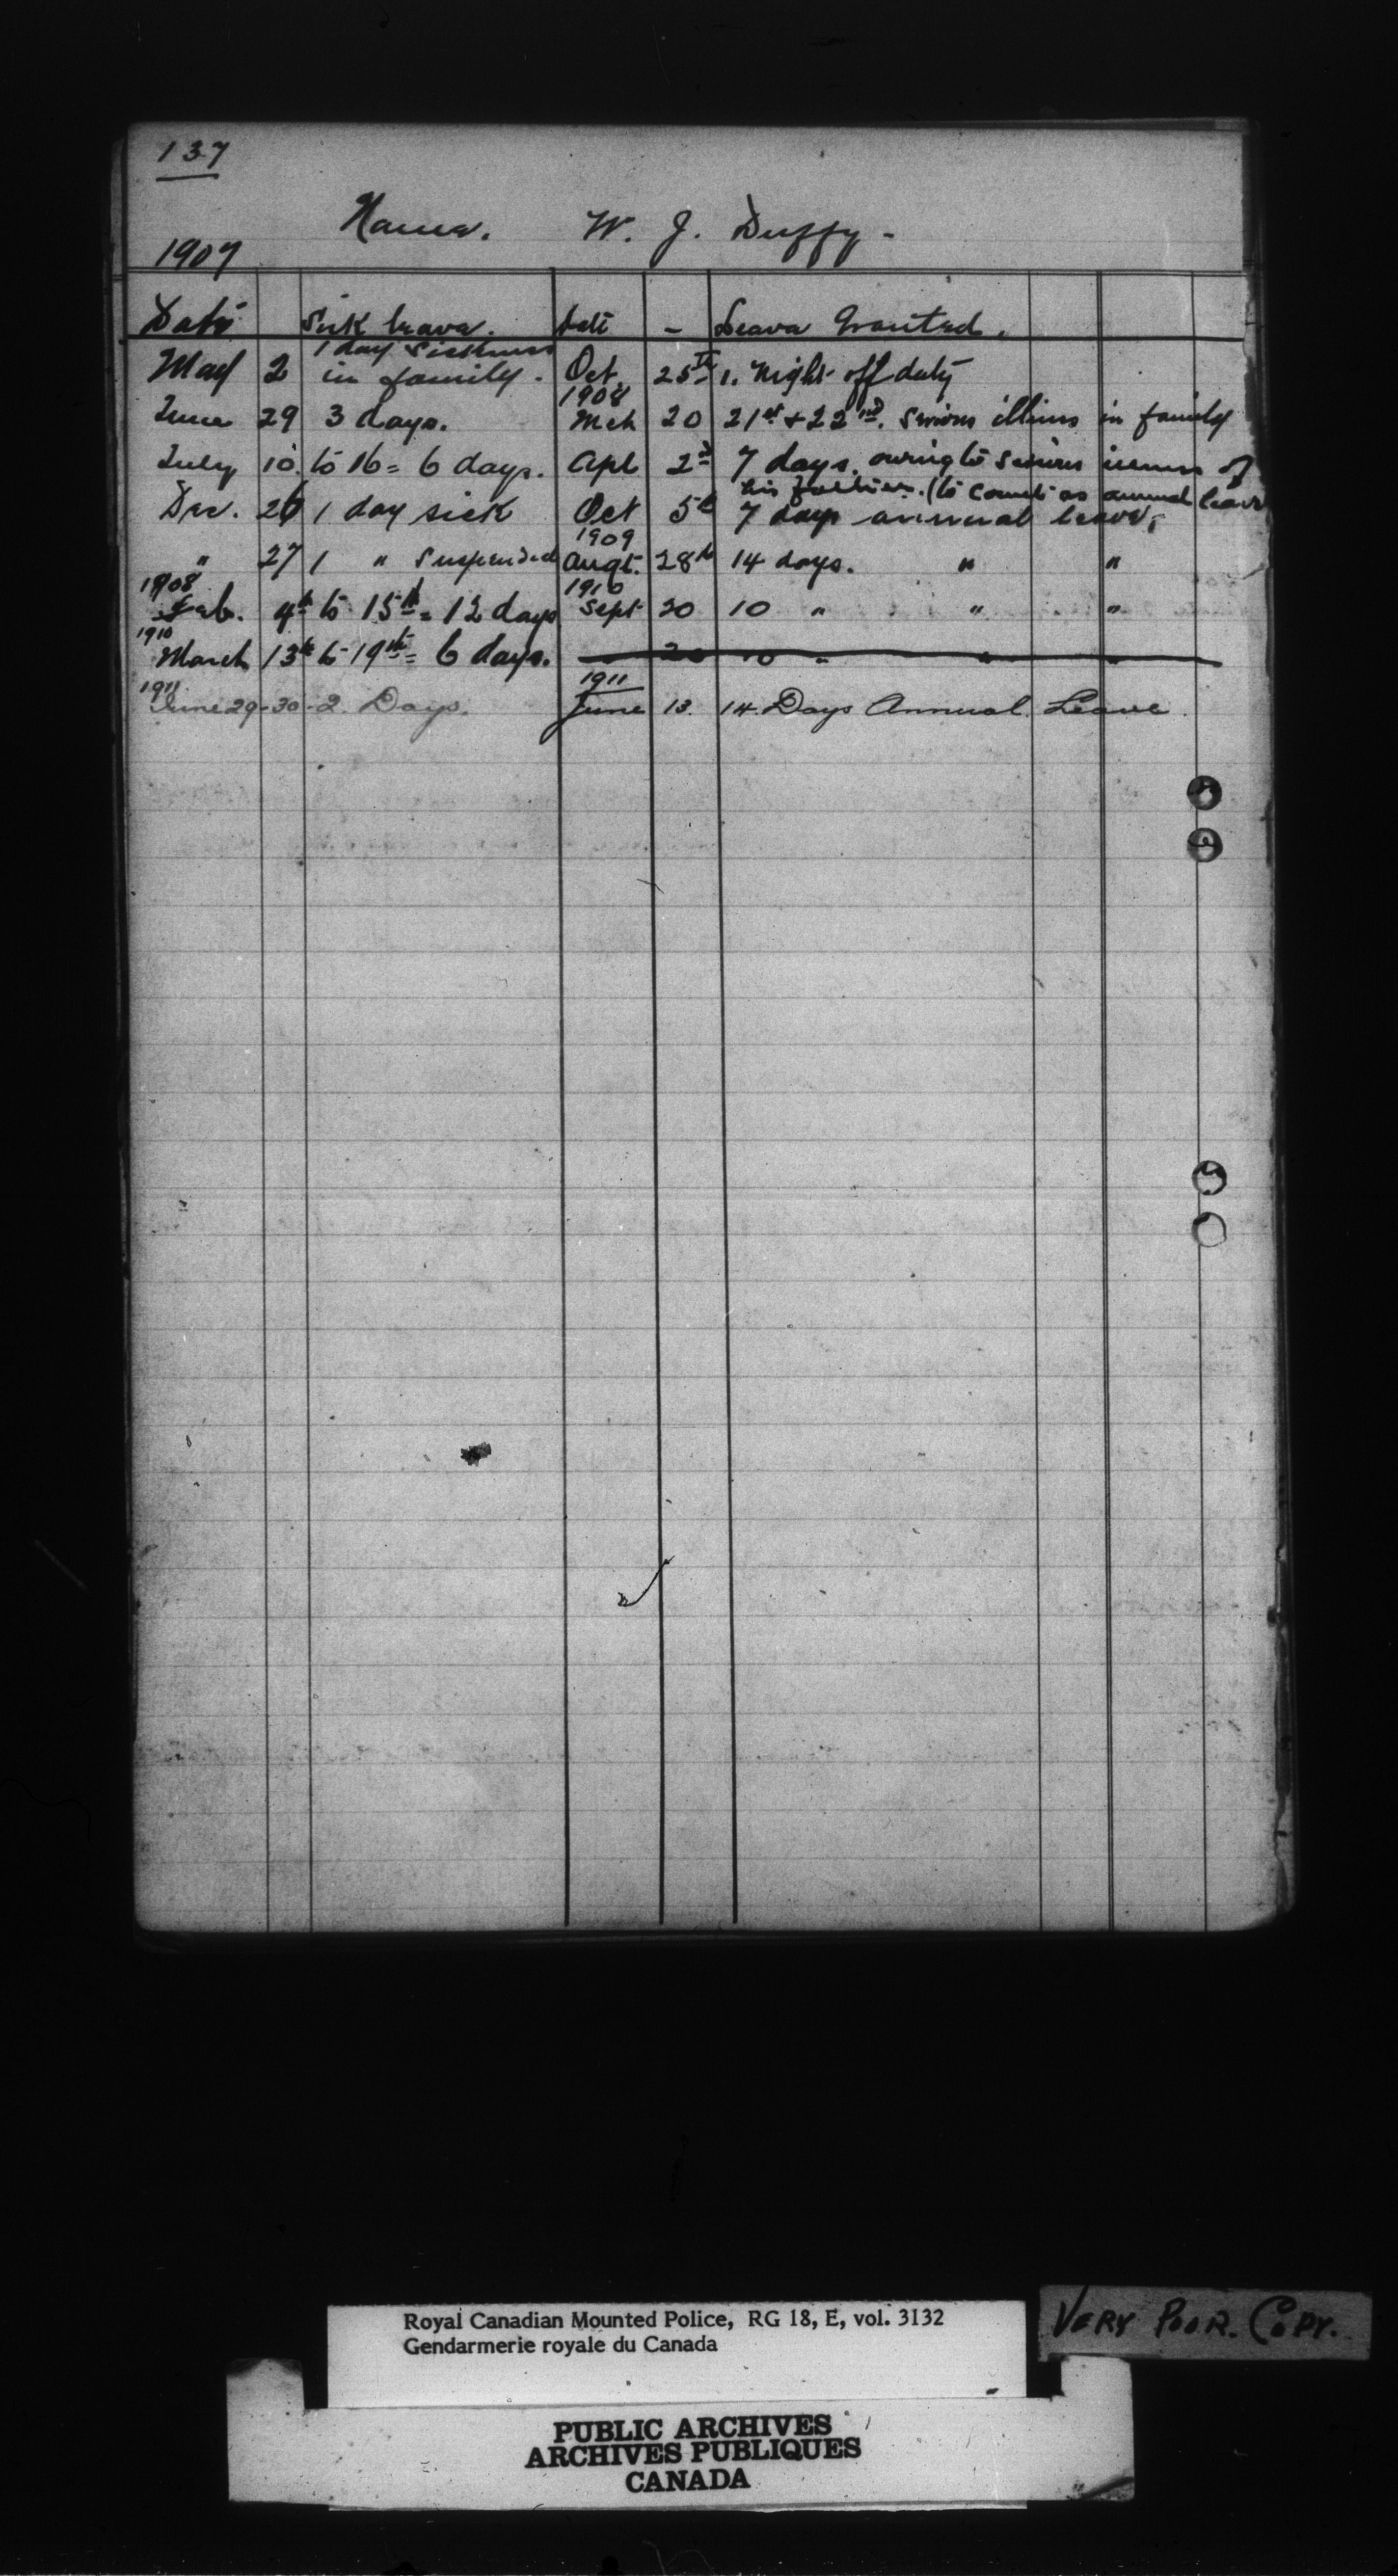 137
Name. W. J. Duffy -
1907
Date Sick leave. Date - Leave Granted.
1 day sickness
May 2 in family. Oct. 25th 1. night off duty
1908
June 29 3 days. Mch 20 21st + 22nd. Serious illness in family
July 10. to 16 = 6 days. Apl 2nd 7 days. owing to serious illness of
his (to count as annual leave
Dec. 26 1 day sick Oct 5th 7 days annual leave,
1909
" 27 1 " Suspended Augt. 28th 14 days. " "
1908 1910
Feb. 4th to 15th = 12 days Sept 20 10 " " "
1910
March 13th to 19th = 6 days. 20 10 " " "
1911 1911
June 29-30-2 Days. June 13. 14 Days Annual Leave.
Royal Canadian Mounted Police, RG 18, E, vol. 3132
Gendarmerie royale du Canada
VERY POOR. COPY.
PUBLIC ARCHIVES
ARCHIVES PUBLIQUES
CANADA